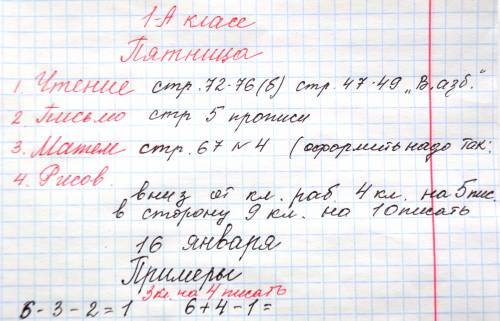 1-А класс
Пятница
1. Чтение стр. 72-76(б) стр. 47-49 „В. азб."
2. Письмо стр 5 прописи
3. Матем стр. 67 №4 (оформить надо так:
4. Рисов.
вниз от кл. раб 4 кл. на 5 пис.
в сторону 9 кл. на 10 писать
16 января
Примеры
3 кл. на 4 писать
6-3-2=1 6+4-1=